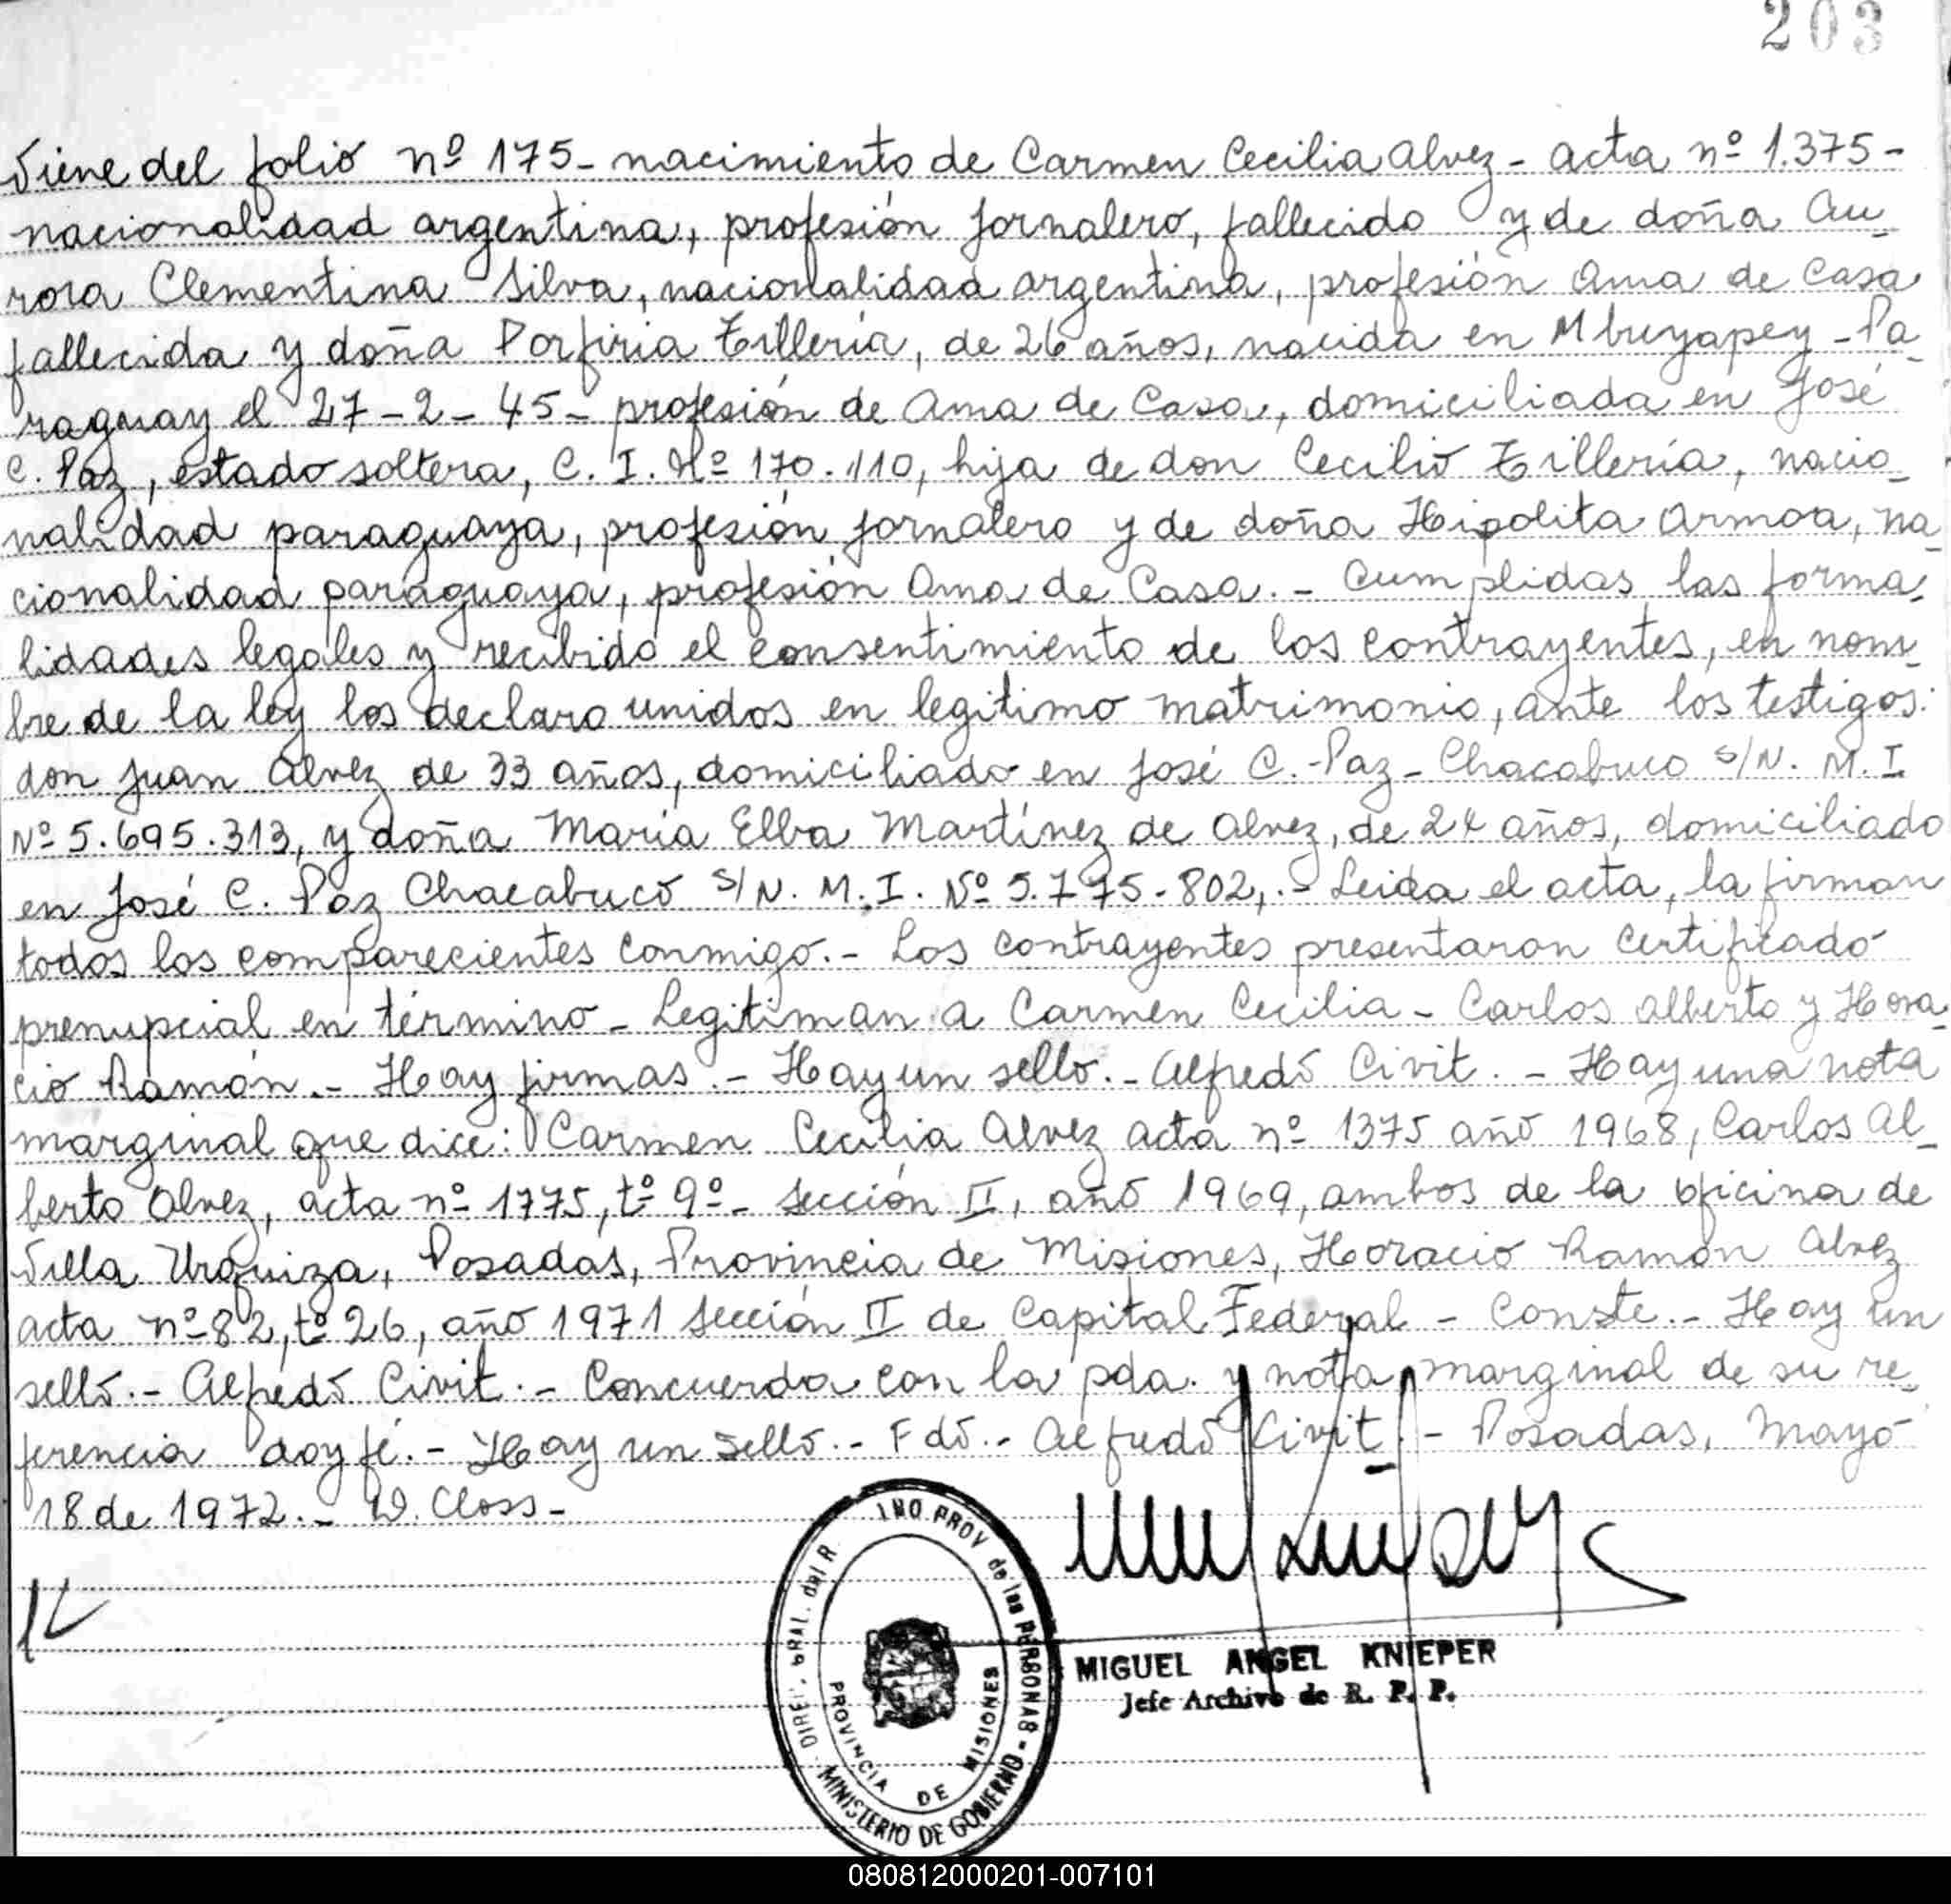 203
Viene del folio nº 175- nacimiento de Carmen Cecilia Alvez - acta nº 1.375-
nacionalidad argentina, profesión jornalero, fallecido y de doña Au_
rora Clementina Silva, nacionalidad argentina, profesión Ama de Casa
fallecida y doña Porfiria Tillería, de 26 años, nacida en Mbuyapey - Pa_
raguay el 27-2-45- profesión de Ama de Casa, domiciliada en José
C. Paz, estado soltera, C. I. Nº 170.110, hija de don Cecilio Tillería, nacio_
nalidad paraguaya, profesión jornalero y de doña Hipolita Armoa, na_
cionalidad paraguaya, profesión Ama de Casa.- Cumplidas las forma_
lidades legales y recibido el consentimiento de los contrayentes, en nom_
bre de la ley los declaro unidos en legitimo matrimonio, ante los testigos:
don Juan Alvez de 33 años, domiciliado en José C. Paz - Chacabuco s/N. M. I.
Nº 5.695.313, y doña María Elba Martínez de Alvez, de 24 años, domiciliado
en José C. Paz Chacabuco s/N. M. I. Nº 5.775-802,.- Leida el acta, la firman
todos los comparecientes conmigo.- Los contrayentes presentaron certificado
prenupcial en término - Legitiman a Carmen Cecilia - Carlos Alberto y Hora_
cio Ramón.- Hay firmas.- Hay un sello.- Alfredo Civit.- Hay una nota
marginal que dice: Carmen Cecilia Alvez acta nº 1375 año 1968, Carlos Al_
berto Alvez, acta nº 1775, tº 9º- Sección II, año 1969, ambos de la oficina de
Villa Urquiza, Posadas, Provincia de Misiones, Horacio Ramón Alvez
acta nº 82, tº 26, año 1971 Sección II de Capital Federal - Conste.- Hay un
sello.- Alfredo Civit.- Concuerda con la pda. y nota marginal de su re_
ferencia doy fé.- Hay un sello.- Fdo.- Alfredo Civit.- Posadas, Mayo
18 de 1972.- W. Closs-
DIREC. GRAL. del R. PROV de las PERSONAS
PROVINCIA DE MISIONES
MINISTERIO DE GOBIERNO
MIGUEL ANGEL KNIEPER
Jefe Archivo de R. P. P.
080812000201-007101